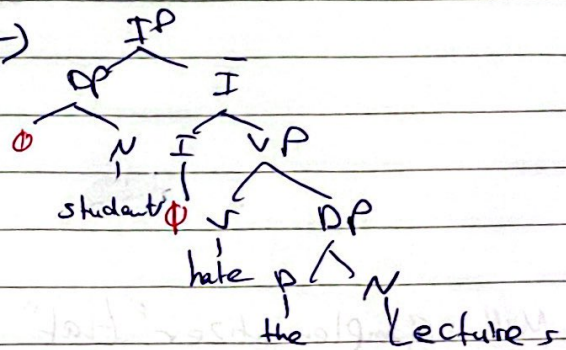 -)
IP
DP Ī
φ N I VP
students φ V DP
hate P N
the Lectures